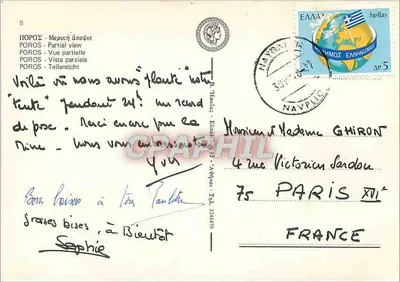 8
ΠΟΡΟΣ - Μερική άποψις
POROS - Partial view
POROS - Vue partielle
POROS - Vista parziale
POROS - Teilansicht
Voilà où nous avons "planté" notre
"tente" pendant 24h. un record
de pose. Merci encore pour la
Nous vous
Yves
Bons baisers à tous
grosses bises, à Bientôt
Sophie
ΕΛΛΑΣ hellas
ΔΗΜΟΣ ΕΛΛΗΝΙΣΜΟΣ
ΔΡ 5
NAVPLIO
Monsieur et Madame GHIRON
4 rue Victorien Sardou
75 PARIS XVIe
FRANCE